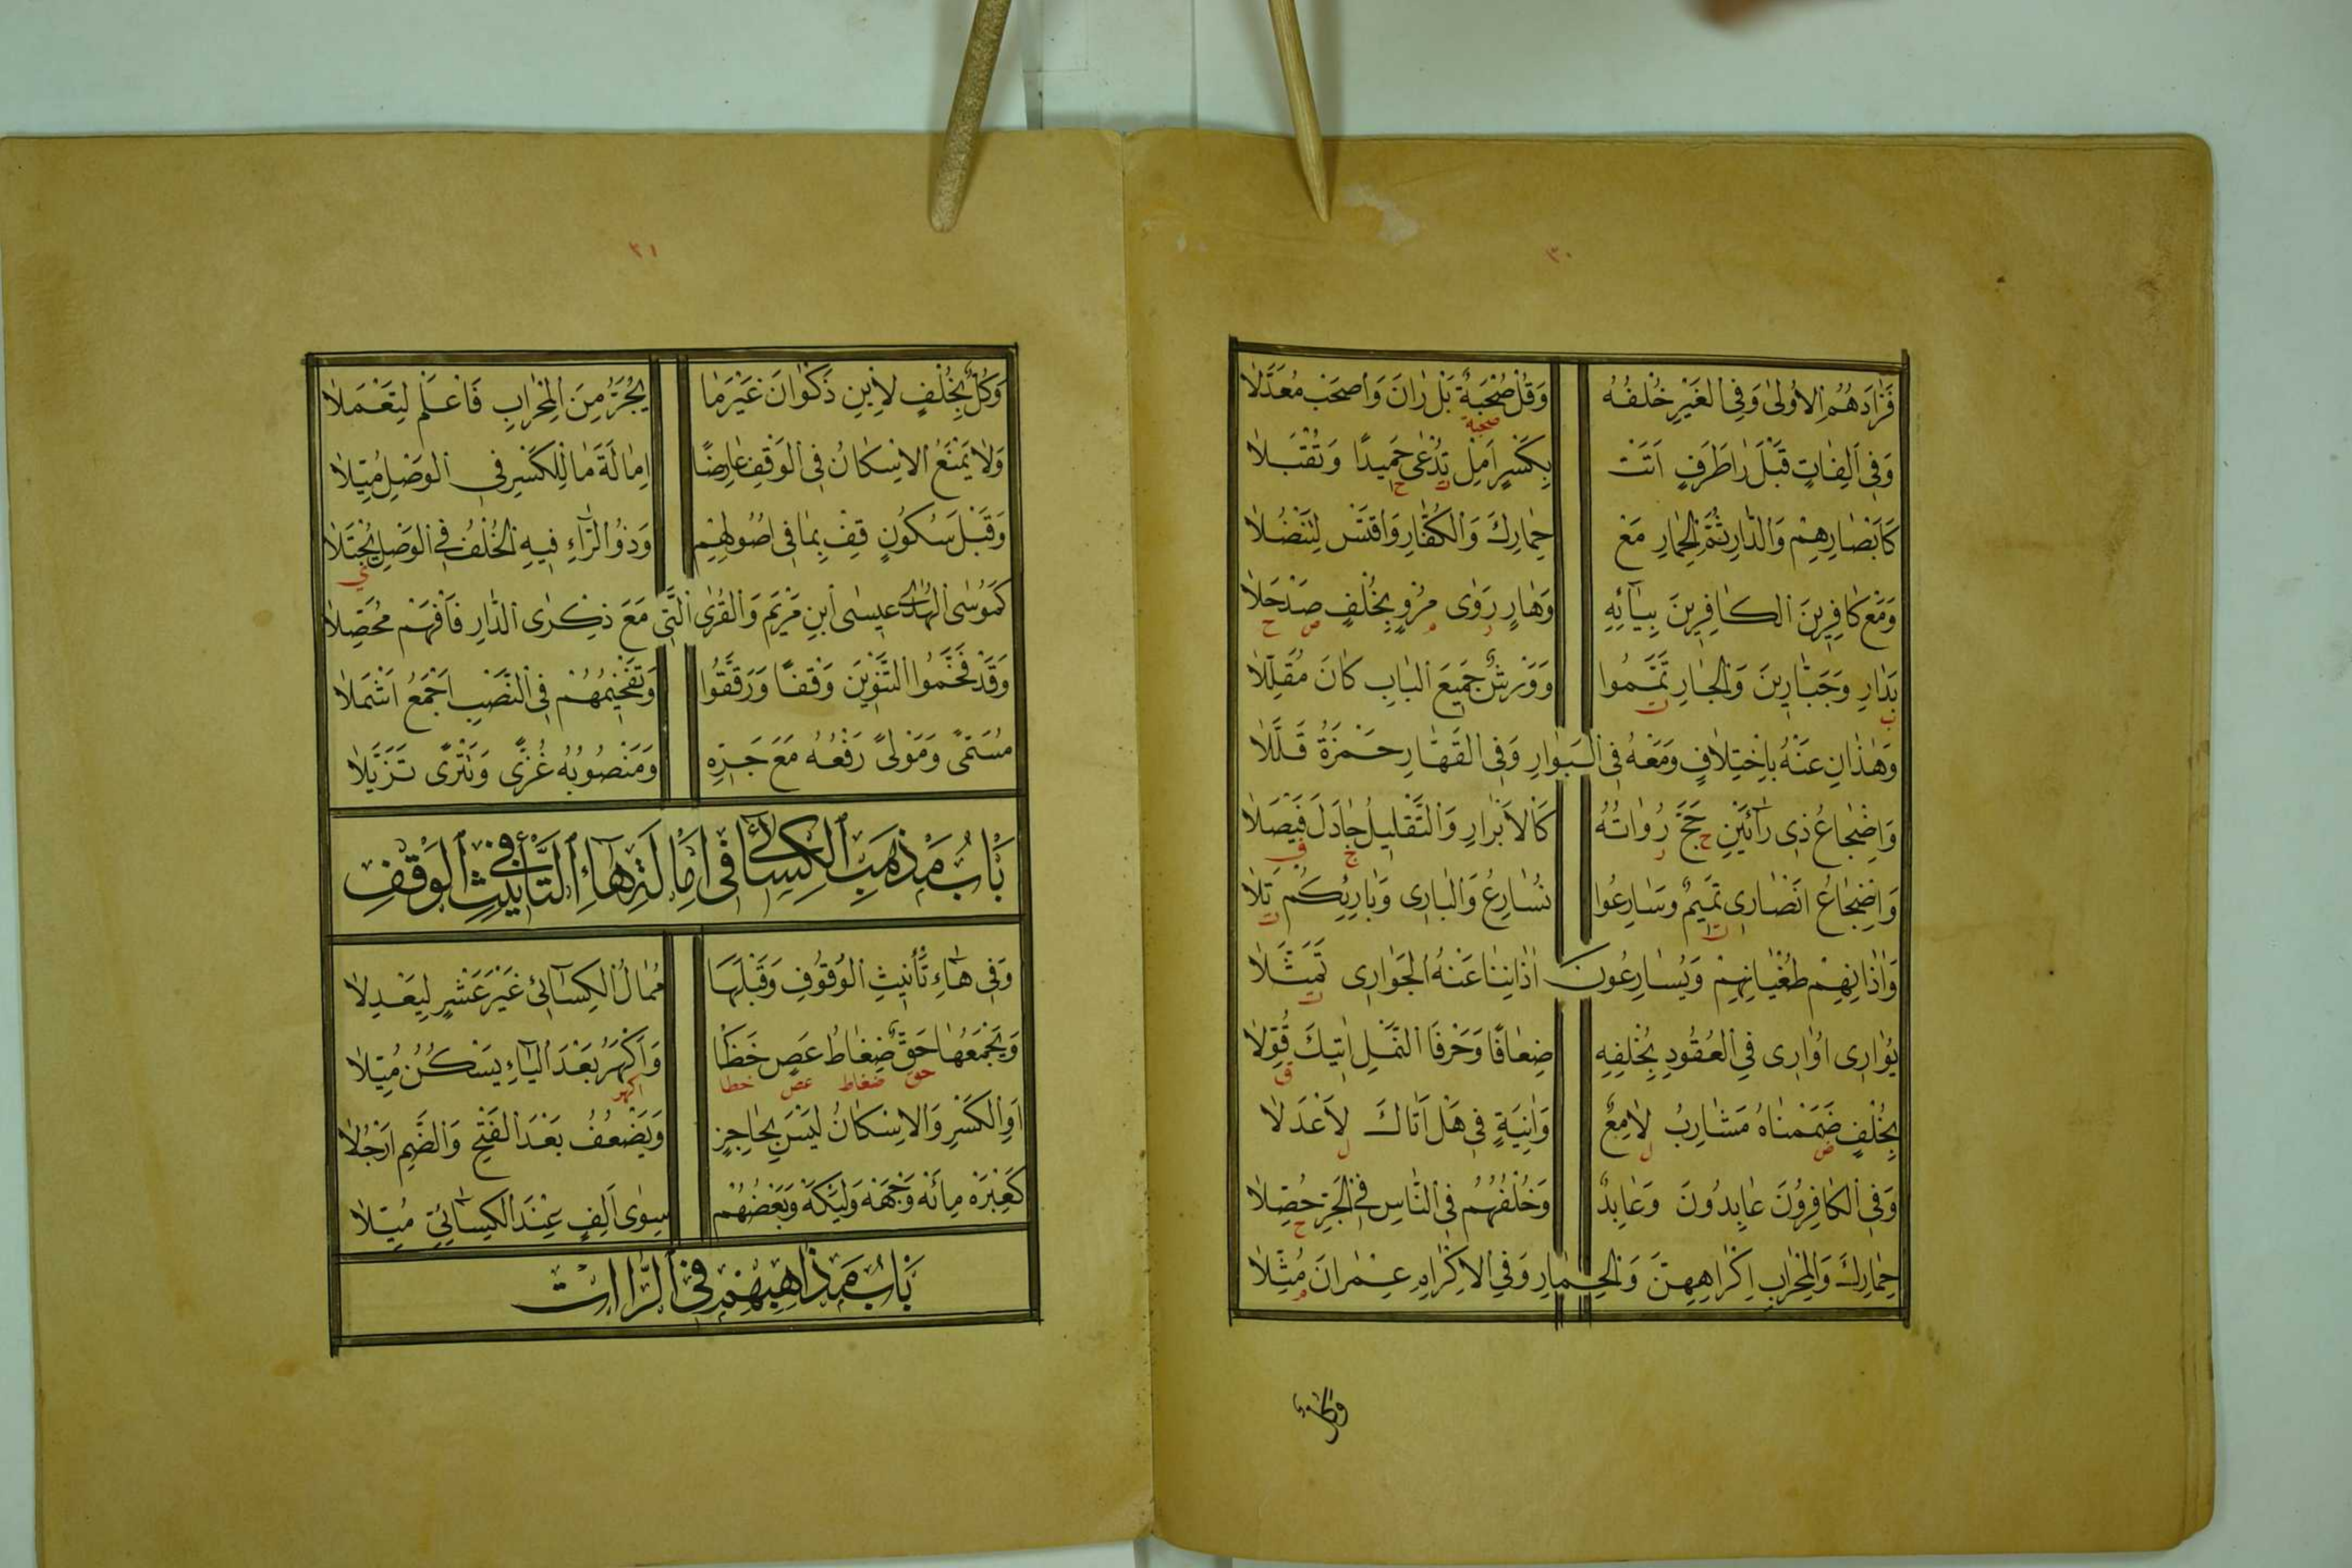 ٣٠
فَزَادَهُمُ الْاُولٰى وَفِى الْغَيْرِ خُلْفُهُ وَقُلْ صُحْبَةٌ بَلْ رَانَ وَاصْحَبْ مُعَدَّلَا
صحبة
وَفِى اَلِفَاتٍ قَبْلَ رَا طَرَفٍ اَتَتْ بِكَسْرٍ اَمِلْ تُدْعٰى حَمِيدًا وَتُقْبَلَا
ت ح
كَاَبْصَارِهِمْ وَالدَّارِ ثُمَّ الْحِمَارِ مَعْ حِمَارِكَ وَالْكُفَّارِ وَاقْتَسْ لِتَنْضُلَا
وَمَعْ كَافِرِينَ الْكَافِرِينَ بِيَائِهِ وَهَارٍ رَوٰى مُرْوٍ بِخُلْفٍ صَدٍ حَلَا
ر م ص ح
بَدَارِ وَجَبَّارِينَ وَالْجَارِ تَمَّمُوا وَوَرْشٌ جَمِيعَ الْبَابِ كَانَ مُقَلِّلَا
ب ت
وَهٰذَانِ عَنْهُ بِاخْتِلَافٍ وَمَعْهُ فِى الْبَوَارِ وَفِى الْقَهَّارِ حَمْزَةُ قَلَّلَا
وَاِضْجَاعُ ذِى رَائَيْنِ حَجَّ رُوَاتُهُ كَالْاَبْرَارِ وَالتَّقْلِيلُ جَادَلَ فَيْصَلَا
ح ر ج ف
وَاِضْجَاعُ اَنْصَارِى تَمِيمٌ وَسَارِعُوا نُسَارِعُ وَالْبَارِى وَبَارِئِكُمْ تَلَا
ت ت
وَاٰذَانِهِمْ طُغْيَانِهِمْ وَيُسَارِعُونَ اٰذَانِنَا عَنْهُ الْجَوَارِى تَمَثَّلَا
ت
يُوَارِى اُوَارِى فِى الْعُقُودِ بِخُلْفِهِ ضِعَافًا وَحَرْفَا النَّمْلِ اٰتِيكَ قُوِّلَا
ق
بِخُلْفٍ ضَمَمْنَاهُ مَشَارِبُ لَامِعٌ وَاٰنِيَةٍ فِى هَلْ اَتَاكَ لِاَعْدَلَا
ض ل ل
وَفِى الْكَافِرُونَ عَابِدُونَ وَعَابِدٌ وَخُلْفُهُمُ فِى النَّاسِ فِى الْجَرِّ حُصِّلَا
ح
حِمَارِكَ وَالْمِحْرَابِ اِكْرَاهِهِنَّ وَالْحِمَارِ وَفِى الْاِكْرَامِ عِمْرَانَ مُثِّلَا
م
وَكُلٌّ
٣١
وَكُلٌّ بِخُلْفٍ لِابْنِ ذَكْوَانَ غَيْرَ مَا يُجَرُّ مِنَ الْمِحْرَابِ فَاعْلَمْ لِتَعْمَلَا
وَلَا يَمْنَعُ الْاِسْكَانُ فِى الْوَقْفِ عَارِضًا اِمَالَةَ مَا لِلْكَسْرِ فِى الْوَصْلِ مُيِّلَا
وَقَبْلَ سُكُونٍ قِفْ بِمَا فِى اُصُولِهِمْ وَذُو الرَّاءِ فِيهِ الْخُلْفُ فِى الْوَصْلِ يُجْتَلَا
ى
كَمُوسَى الْهُدٰى عِيسَى ابْنِ مَرْيَمَ وَالْقُرَى الَّتِى مَعَ ذِكْرَى الدَّارِ فَافْهَمْ مُحَصِّلَا
وَقَدْ فَخَّمُوا التَّنْوِينَ وَقْفًا وَرَقَّقُوا وَتَفْخِيمُهُمْ فِى النَّصْبِ اَجْمَعُ اَشْمَلَا
مُسَمًّى وَمَوْلًى رَفْعُهُ مَعَ جَرِّهِ وَمَنْصُوبُهُ غُزًّى وَتَتْرًى تَزَيَّلَا
بَابُ مَذْهَبِ الْكِسَائِى فِى اِمَالَةِ هَاءِ التَّأْنِيثِ فِى الْوَقْفِ
وَفِى هَاءِ تَأْنِيثِ الْوُقُوفِ وَقَبْلَهَا مُمَالُ الْكِسَائِى غَيْرَ عَشْرٍ لِيَعْدِلَا
وَيَجْمَعُهَا حَقٌّ ضِغَاطُ عَصٍ خَظَا وَاَكْهَرُ بَعْدَ الْيَاءِ يَسْكُنُ مُيِّلَا
حق ضغاط عص خظا اكهر
اَوِ الْكَسْرِ وَالْاِسْكَانُ لَيْسَ بِحَاجِزٍ وَيَضْعُفُ بَعْدَ الْفَتْحِ وَالضَّمِّ اَرْجُلَا
كَعِبْرَهْ مِائَهْ وِجْهَهْ وَلَيْكَهْ وَبَعْضُهُمْ سِوٰى اَلِفٍ عِنْدَ الْكِسَائِيِّ مُيِّلَا
بَابُ مَذَاهِبِهِمْ فِى الرَّااتِ